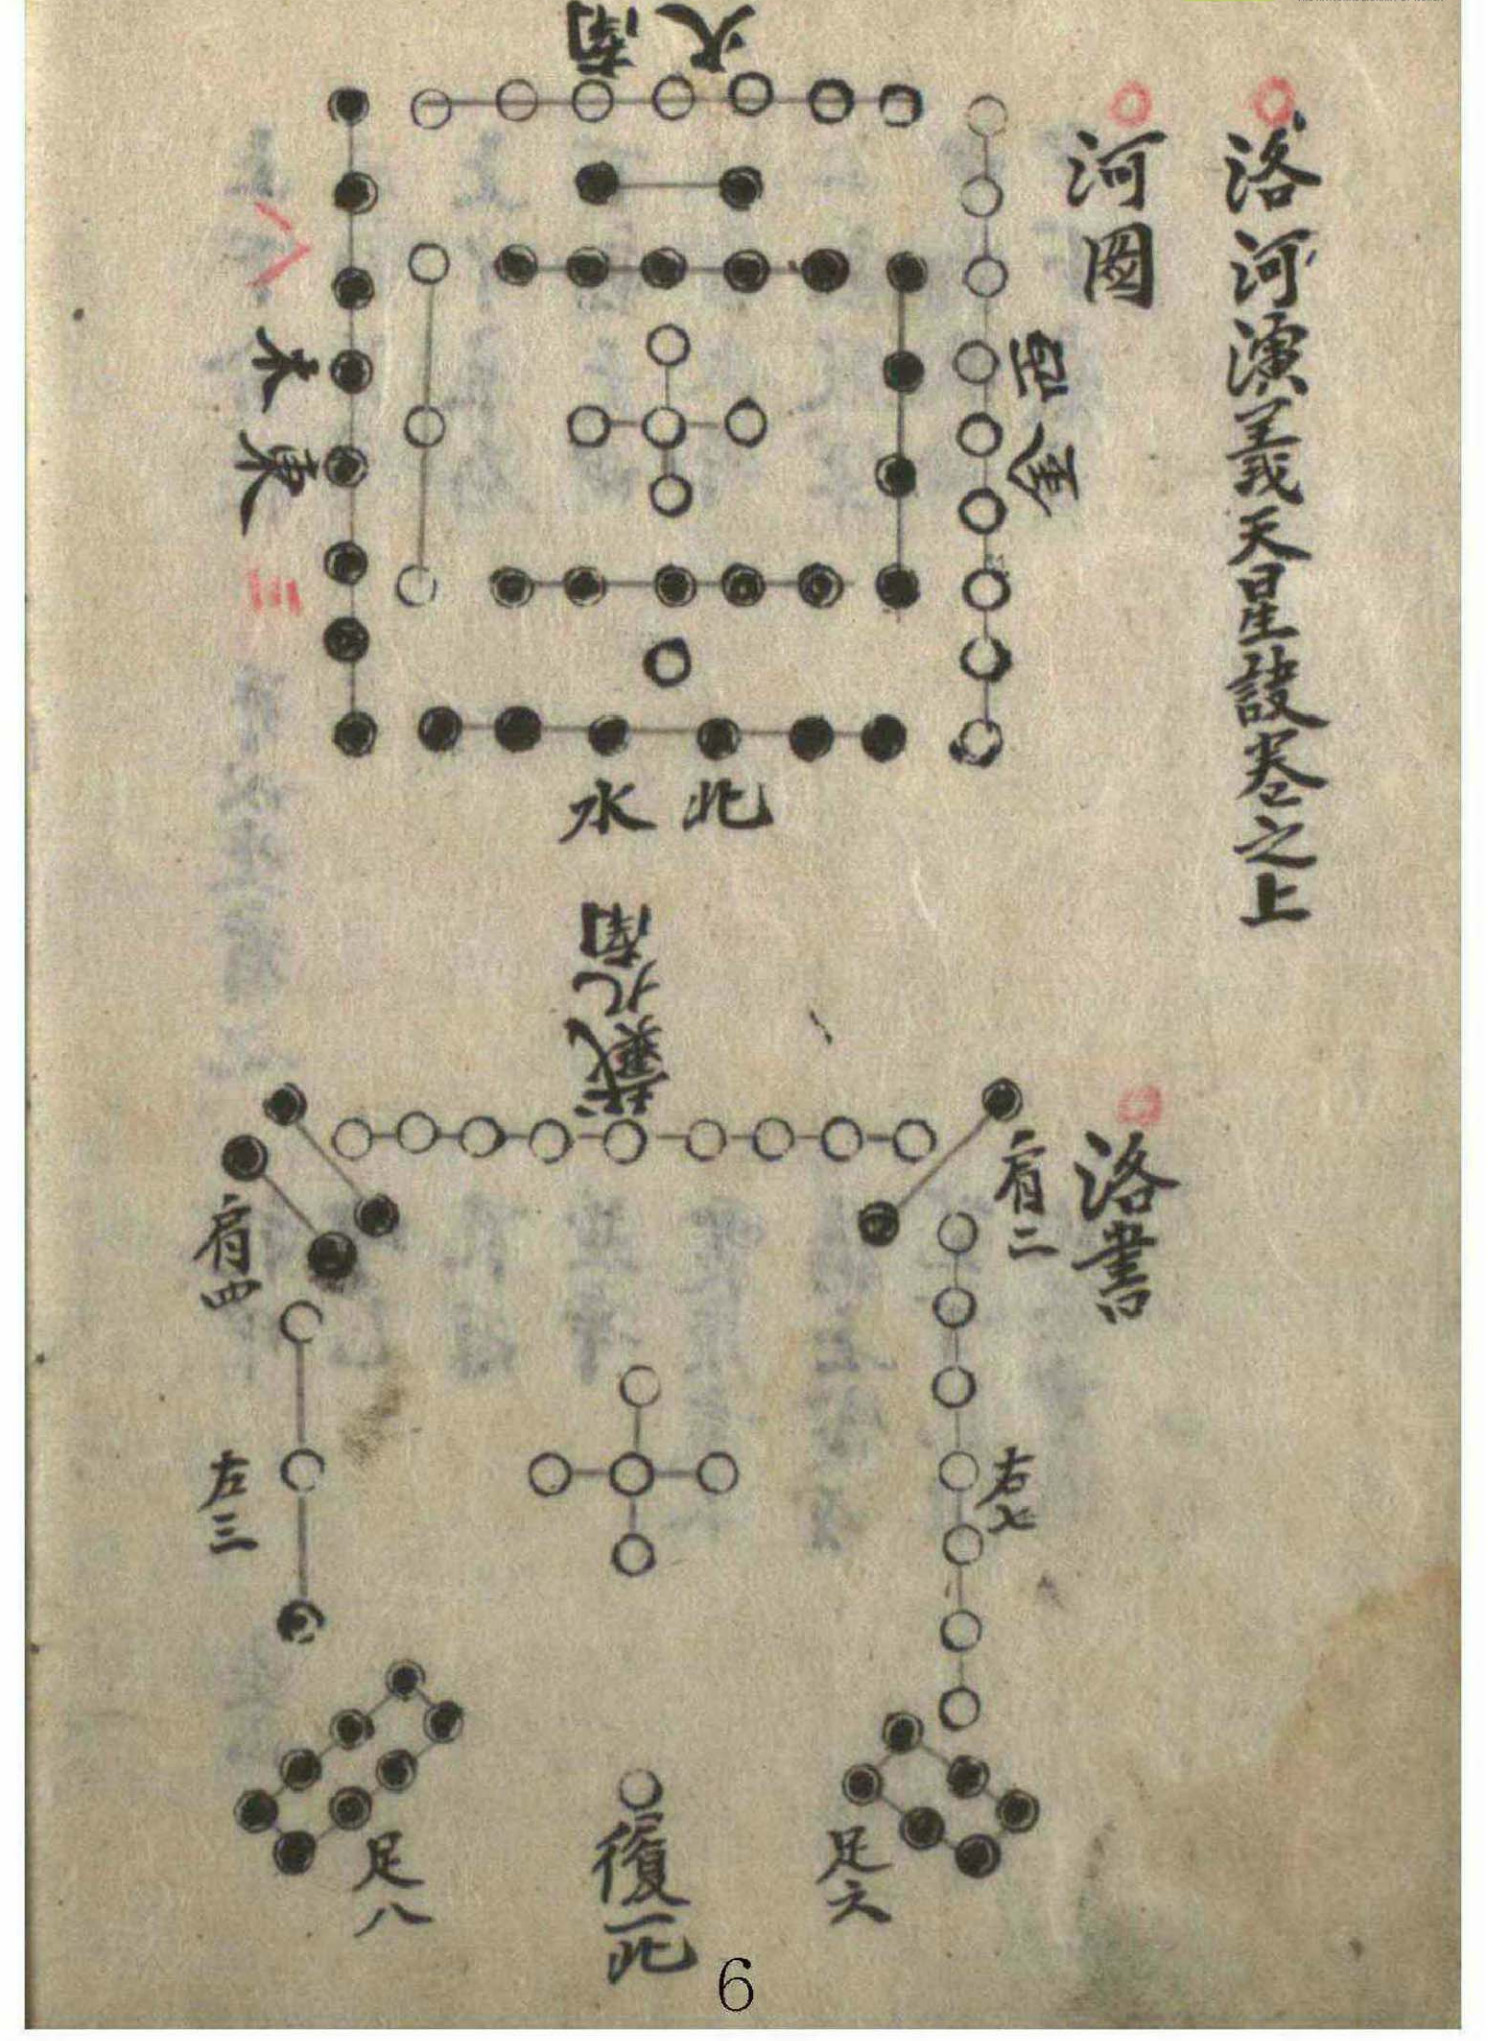 洛河演義天星設卷之上
河圖
火南
西金
木東
八
三
水北
洛書
戴九南
肩二
肩四
右七
左三
足六
足八
履一北
6